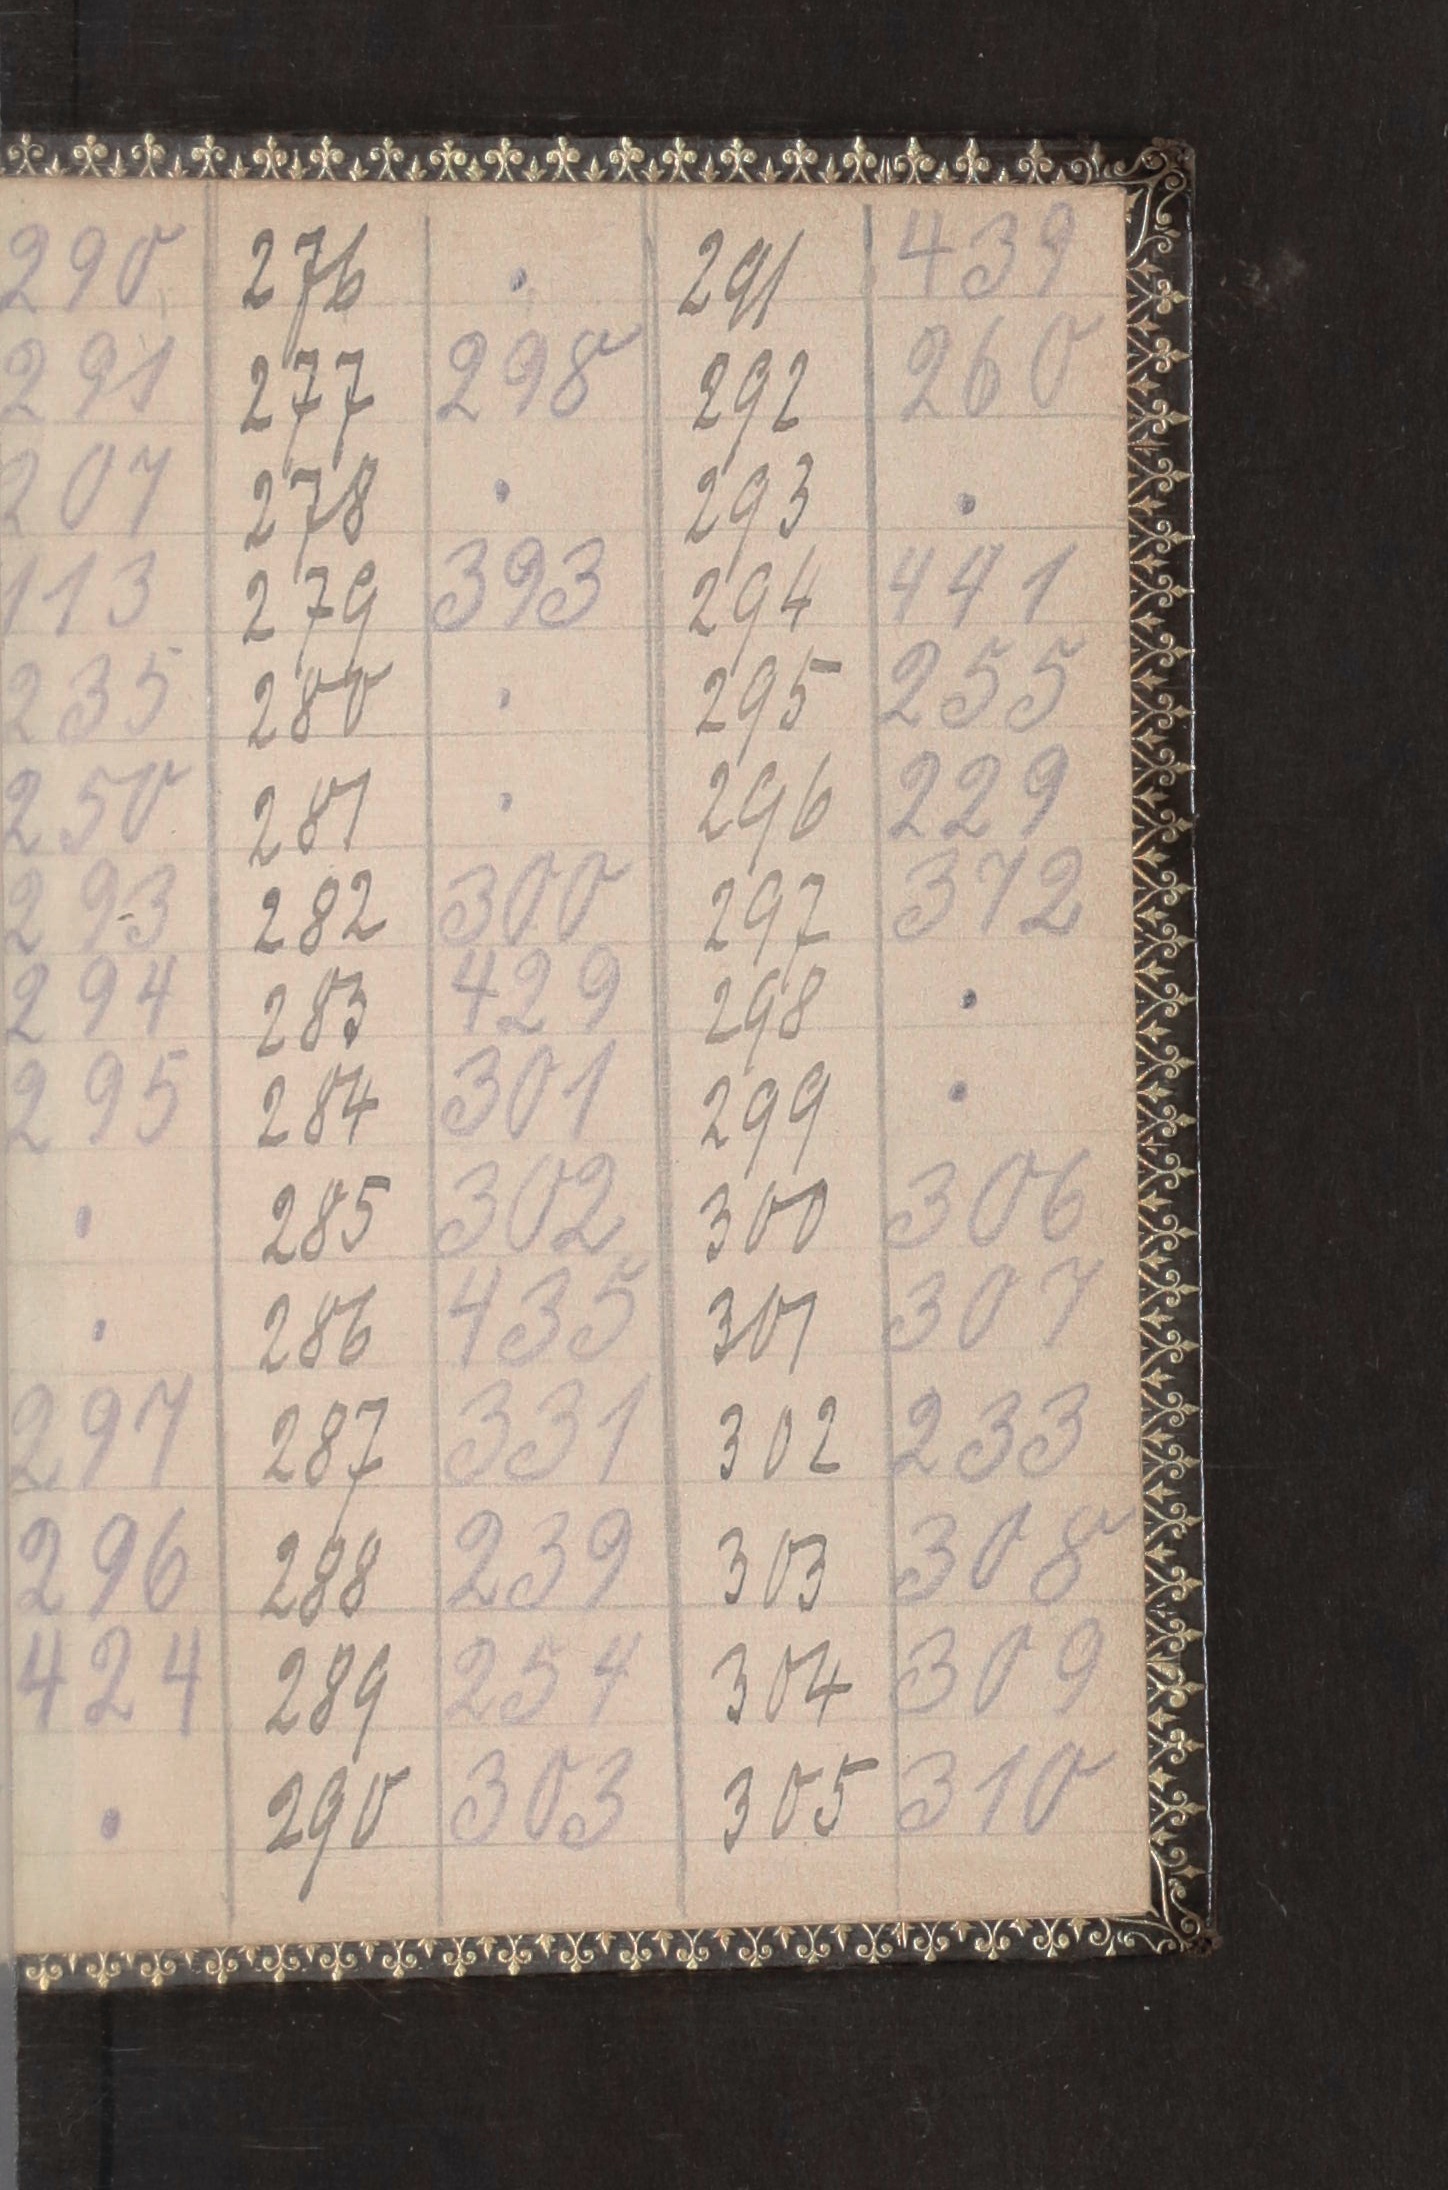 290 276 . 291 439
291 277 298 292 260
207 278 . 293 .
113 279 393 294 441
235 280 . 295 255
250 281 . 296 229
293 282 300 297 372
294 283 429 298 .
295 284 301 299 .
. 285 302 300 306
. 286 435 301 307
297 287 331 302 233
296 288 239 303 308
424 289 254 304 309
. 290 303 305 310